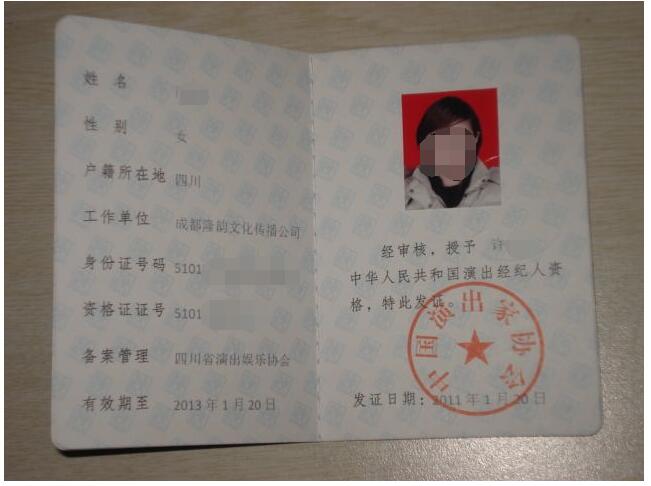 姓 名
性 别 女
户籍所在地 四川
工作单位 成都隆韵文化传播公司
身份证号码 5101
资格证证号 5101
备案管理 四川省演出娱乐协会
有效期至 2013 年 1 月 20 日
经审核，授予 许
中华人民共和国演出经纪人资
格，特此发证。
中国演出家协会
发证日期：2011 年 1 月 20 日